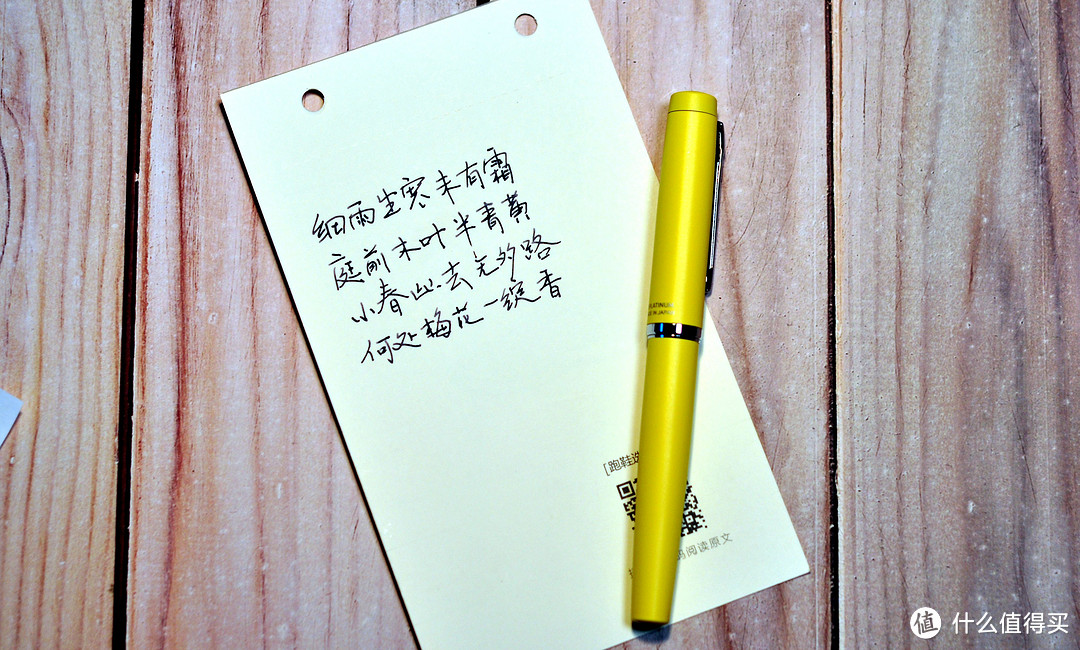 细雨生寒未有霜
庭前木叶半青黄
小春此去无多路
何处梅花一绽香
PLATINUM
IN JAPAN
[跑鞋选
码阅读原文
值 什么值得买